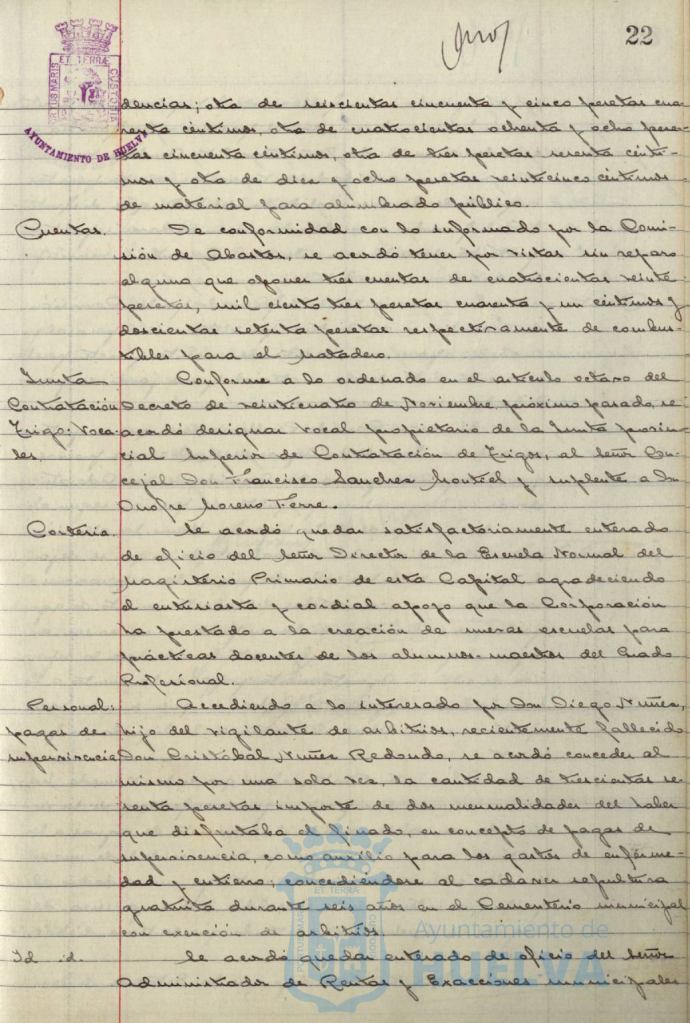 22
ET TERRÆ
PORTUS MARIS
CUSTODIA
AYUNTAMIENTO DE HUELVA
dencias; otra de seiscientas cincuenta y cinco pesetas cua-
renta céntimos, otra de cuatrocientas ochenta y ocho pese-
tas cincuenta céntimos, otra de tres pesetas sesenta cénti-
mos y otra de diez y ocho pesetas veinticinco céntimos
de material para alumbrado público.
Cuentas. De conformidad con lo informado por la Comi-
sión de Abastos, se acordó tener por vistas sin reparo
alguno que oponer tres cuentas de cuatrocientas veinte
pesetas, mil ciento tres pesetas cuarenta y un céntimos y
doscientas setenta pesetas respectivamente de combus-
tibles para el Matadero.
Junta Conforme a lo ordenado en el artículo octavo del
Contratación Decreto de veinticuatro de Noviembre próximo pasado, se
Trigo: Voca- acordó designar vocal propietario de la Junta provin-
les. cial Superior de Contratación de Trigos, al Señor Con-
cejal Don Francisco Sanchez Montiel y suplente a Don
Onofre Moreno Ferre.
Cortesía. Se acordó quedar satisfactoriamente enterado
de oficio del Señor Director de la Escuela Normal del
Magisterio Primario de esta Capital agradeciendo
el entusiasta y cordial apoyo que la Corporación
ha prestado a la creación de nuevas escuelas para
prácticas docentes de los alumnos-maestros del Grado
Profesional.
Personal: Accediendo a lo interesado por Don Diego Nuñez,
pagas de hijo del vigilante de arbitrios, recientemente fallecido
supervivencia Don Cristóbal Nuñez Redondo, se acordó conceder al
mismo por una sola vez, la cantidad de trescientas se-
senta pesetas importe de dos mensualidades del haber
que disfrutaba el finado, en concepto de pagas de
supervivencia, como auxilio para los gastos de enferme-
dad y entierro; concediendose al cadaver sepultura
gratuita durante seis años en el Cementerio municipal
con exención de arbitrios.
Id id. Se acordó quedar enterado de oficio del Señor
Administrador de Rentas y Exacciones municipales
Ayuntamiento de
HUELVA